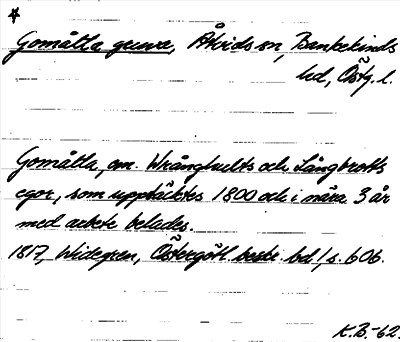 Gomåtla gruva, Åtvids sn, Bankekinds
hd, Östg. l.
Gomåtla, om. Wrånghults och Långbrotts
egor, som upptäcktes 1800 och i nära 3 år
med arbete belades.
1817, Widegren, Östergötl. beskr. bd 1, s. 606.
K.B.-62.